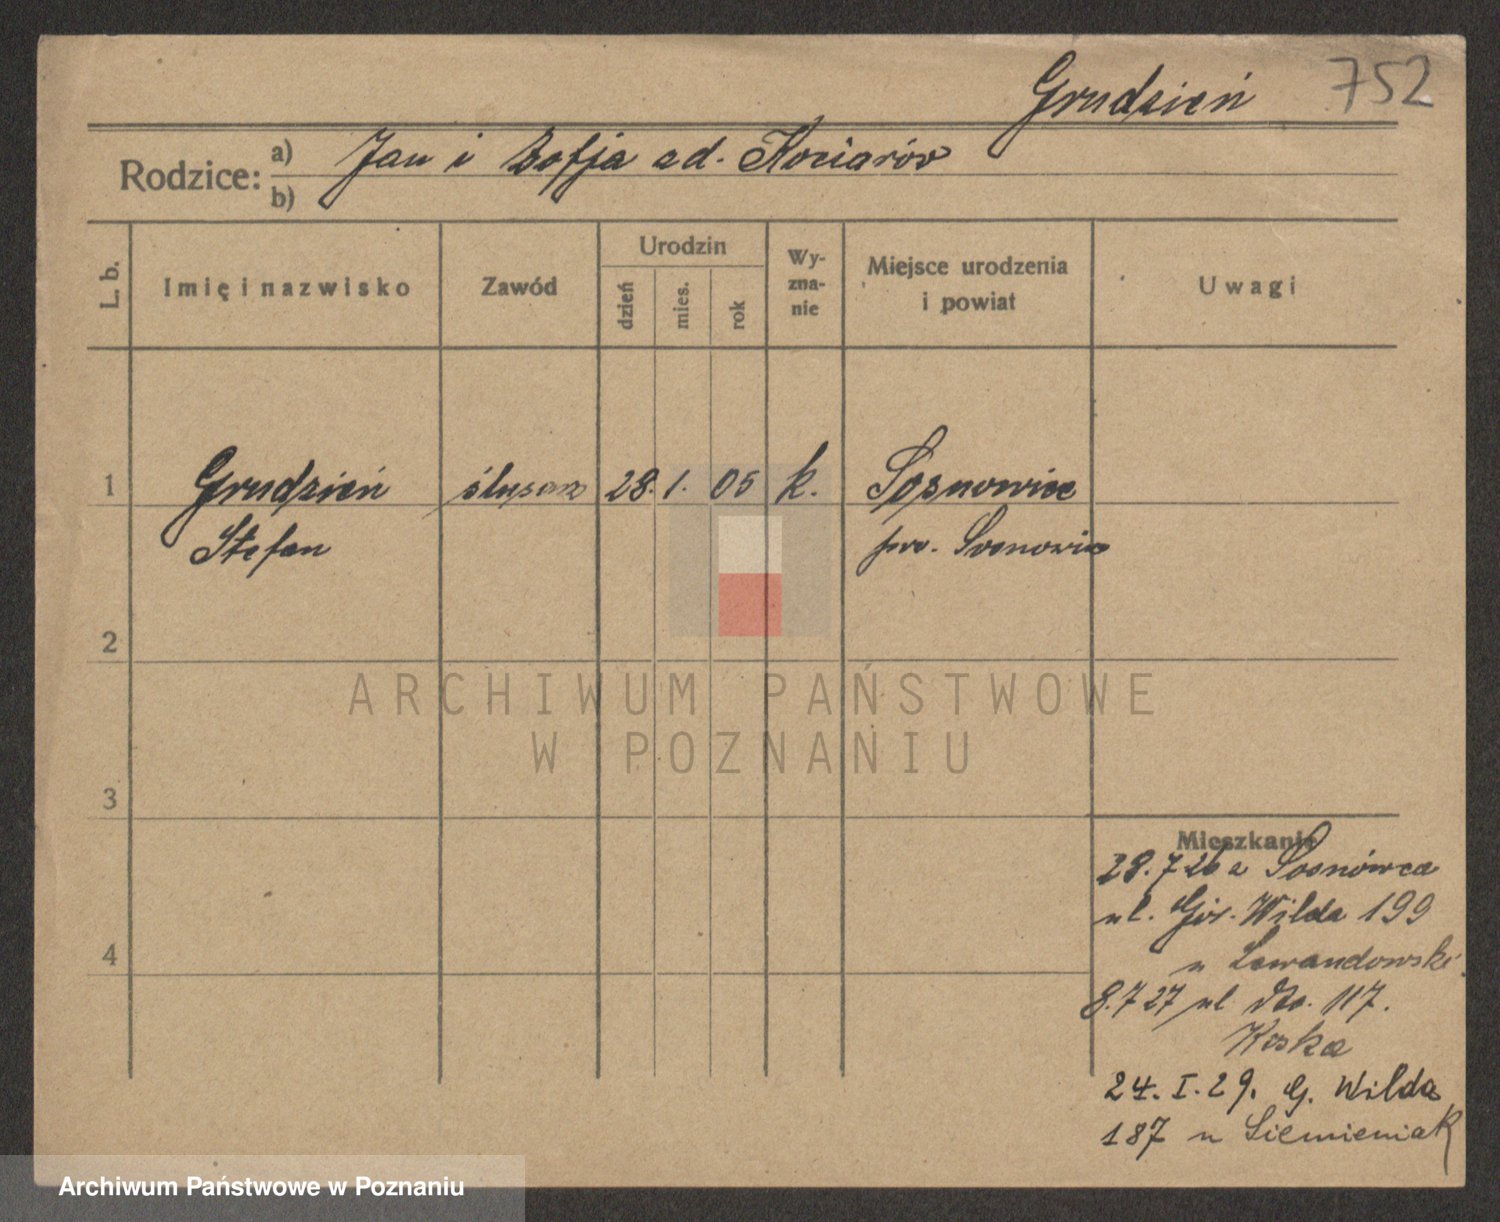 Grudzień 752
Rodzice: a) Jan i Zofja zd. Kociarów
b)
L. b.
Imię i nazwisko
Zawód
Urodzin
dzień
mies.
rok
Wy-
zna-
nie
Miejsce urodzenia
i powiat
Uwagi
1 Grudzień ślusarz 28. 1. 05 k. Sosnowice
Stefan pow. Sosnowic
2
3
4
Mieszkanie
28.7 26 z Sosnówca
ul. Gór. Wilda 199
u Lewandowski
8.7 27 ul 117.
Koska
24. I. 29. G. Wilda
187 u Siemieniak
ARCHIWUM PAŃSTWOWE
W POZNANIU
Archiwum Państwowe w Poznaniu